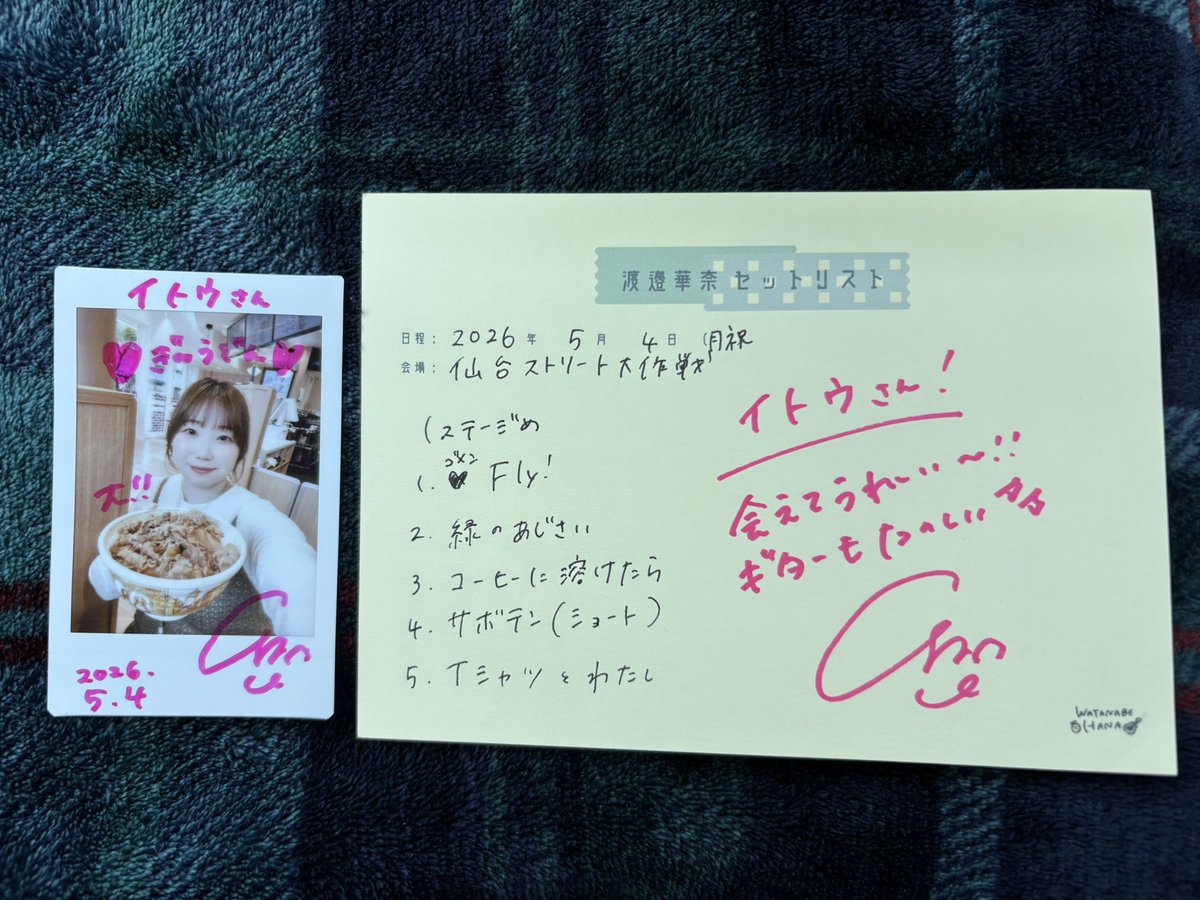 イトウさん
ぎゅうどん
大!!
2026.
5.4
渡邉華奈セットリスト
日程: 2026年 5月 4日 (月祝
会場: 仙台ストリート大作戦
(ステージめ
1. Fly!
2. 緑のあじさい
3. コーヒーに溶けたら
4. サボテン(ショート)
5. Tシャツとわたし
イトウさん!
会えてうれしい〜!!
ギターもたのしい
WATANABE
HANA